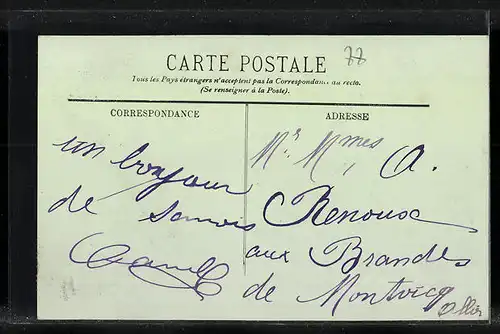 77
CARTE POSTALE
Tous les Pays étrangers n'acceptent pas la Correspondance au recto.
(Se renseigner à la Poste).
CORRESPONDANCE
un bonjour
de Samois
ADRESSE
Mr Mmes A.
Renoux
aux Brandes
de Montvicq
Allier